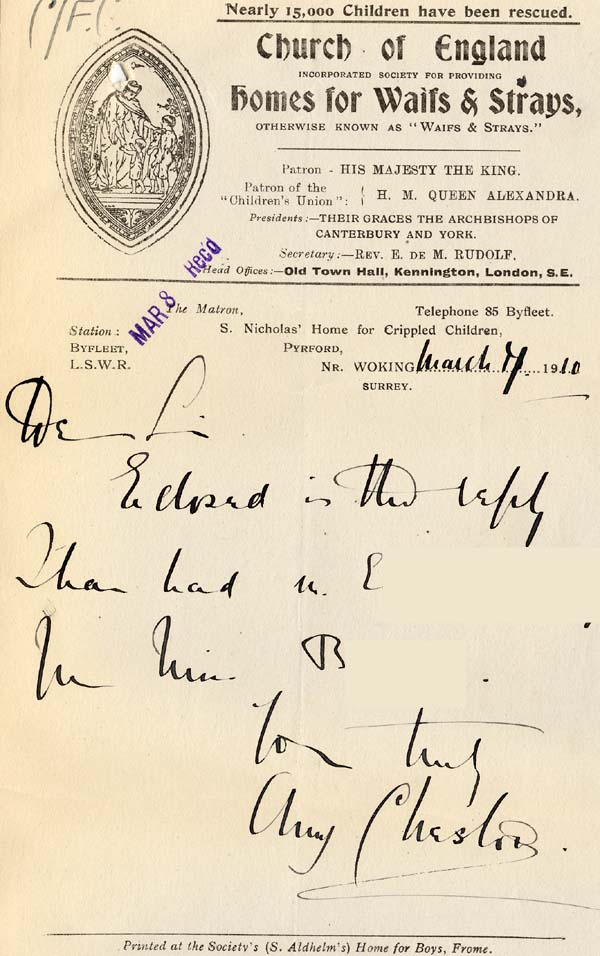 Nearly 15,000 Children have been rescued.
Church of England
INCORPORATED SOCIETY FOR PROVIDING
Homes for Waifs & Strays,
OTHERWISE KNOWN AS "WAIFS & STRAYS."
Patron - HIS MAJESTY THE KING.
Patron of the "Children's Union": { H. M. QUEEN ALEXANDRA.
Presidents:—THEIR GRACES THE ARCHBISHOPS OF
CANTERBURY AND YORK.
Secretary:—REV. E. DE M. RUDOLF.
Head Offices:—Old Town Hall, Kennington, London, S.E.
MAR. 8 Recd
The Matron, Telephone 85 Byfleet.
Station: S. Nicholas' Home for Crippled Children,
BYFLEET, PYRFORD,
L.S.W.R. NR. WOKING, March 7 1910
SURREY.
Dear Sir
Enclosed is the reply
I have had re. E
from Miss B
Yours truly
Amy Cheslow
Printed at the Society's (S. Aldhelm's) Home for Boys, Frome.